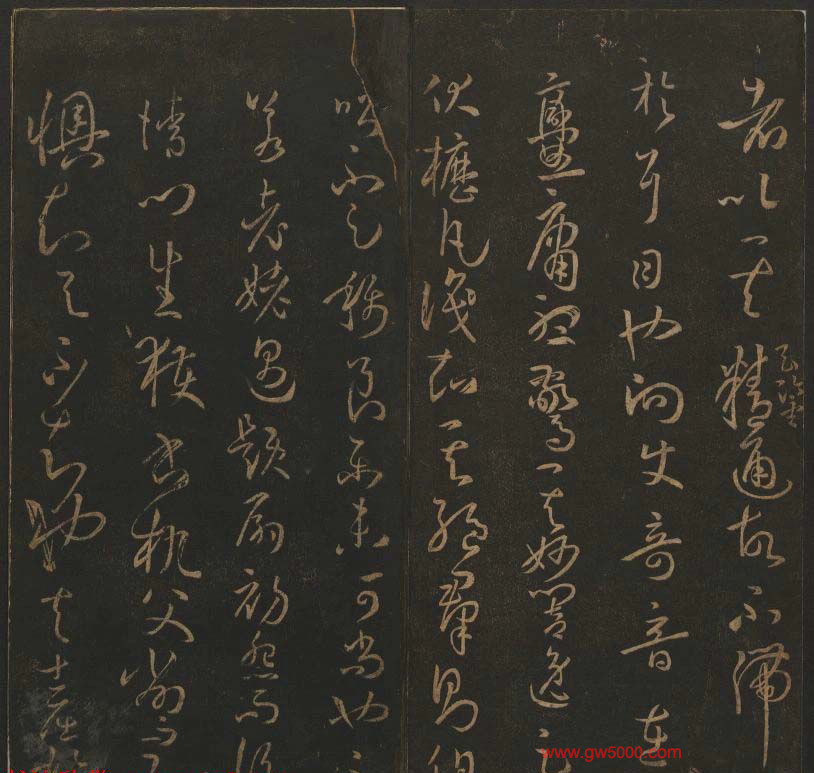 者以其玄鑒精通故不滯
於耳目也向使奇音在
爨庸聽驚其妙響逸足
伏櫪凡識知其絕群則伯
喈不足稱良樂未可尚也至
若老姥遇題扇初怨而後
請門生獲書机父削而子
懊知與不知也夫士屈於
www.gw5000.com